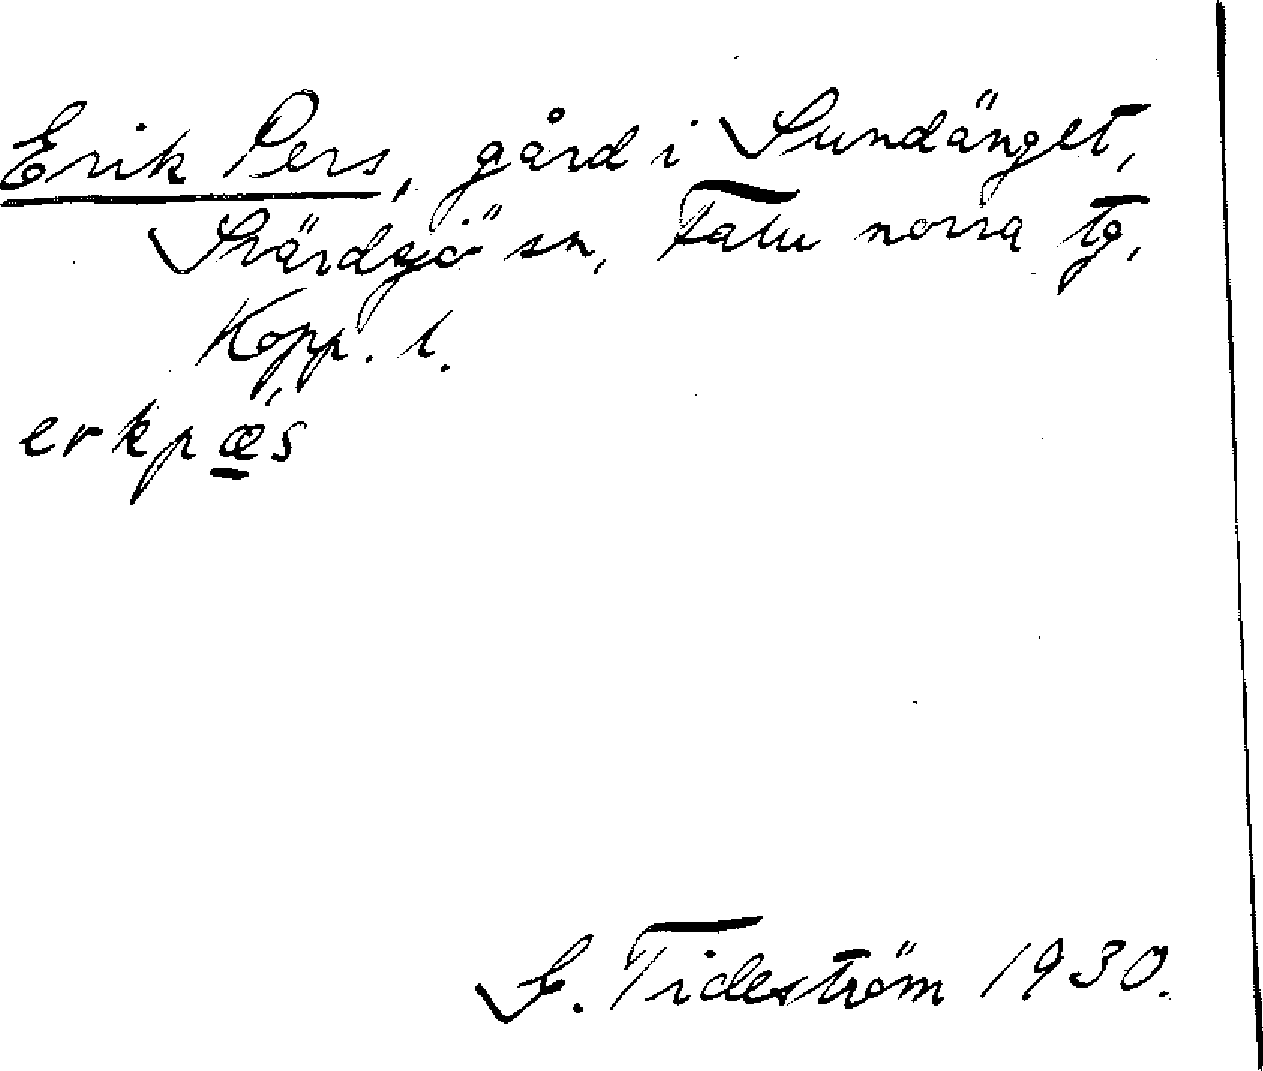 Erik Pers, gård i Sundänget,
Svärdsjö sn, Falu norra tg,
Kopp. l.
erkpæs
S. Tideström 1930.